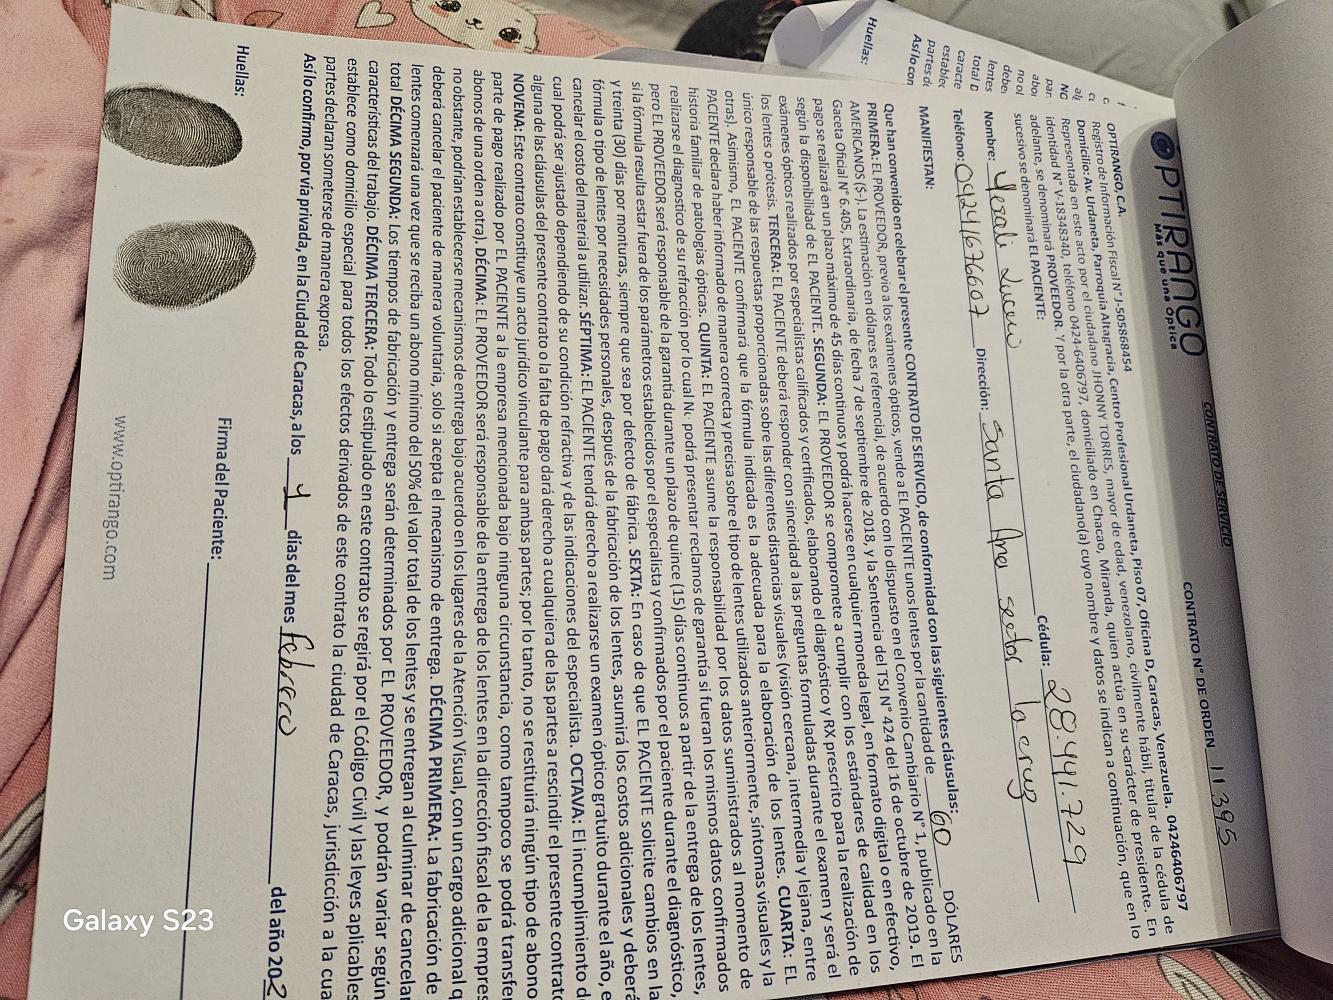 OPTIRANGO
Más que una Óptica
CONTRATO DE SERVICIO
CONTRATO N° DE ORDEN 11395
OPTIRANGO, C.A.
Registro de Información Fiscal N° J-505868454
Domicilio: Av. Urdaneta, Parroquia Altagracia, Centro Profesional Urdaneta, Piso 07, Oficina D, Caracas, Venezuela. 04246406797
Representada en este acto por el ciudadano JHONNY TORRES, mayor de edad, venezolano, civilmente hábil, titular de la cédula de
identidad N° V-18348340, teléfono 0424-6406797, domiciliado en Chacao, Miranda, quien actúa en su carácter de presidente. En
adelante, se denominará PROVEEDOR. Y por la otra parte, el ciudadano(a) cuyo nombre y datos se indican a continuación, que en lo
sucesivo se denominará EL PACIENTE:
Nombre: Cédula: 28.441.729
Teléfono: 04241676607 Dirección: Santa Ana sector la cruz
MANIFIESTAN:
Que han convenido en celebrar el presente CONTRATO DE SERVICIO, de conformidad con las siguientes cláusulas:
PRIMERA: EL PROVEEDOR, previo a los exámenes ópticos, vende a EL PACIENTE unos lentes por la cantidad de 60 DÓLARES
AMERICANOS ($-). La estimación en dólares es referencial, de acuerdo con lo dispuesto en el Convenio Cambiario N° 1, publicado en la
Gaceta Oficial N° 6.405, Extraordinaria, de fecha 7 de septiembre de 2018, y la Sentencia del TSJ N° 424 del 16 de octubre de 2019. El
pago se realizará en un plazo máximo de 45 días continuos y podrá hacerse en cualquier moneda legal, en formato digital o en efectivo,
según la disponibilidad de EL PACIENTE. SEGUNDA: EL PROVEEDOR se compromete a cumplir con los estándares de calidad en los
exámenes ópticos realizados por especialistas calificados y certificados, elaborando el diagnóstico y RX prescrito para la realización de
los lentes o prótesis. TERCERA: EL PACIENTE deberá responder con sinceridad a las preguntas formuladas durante el examen y será el
único responsable de las respuestas proporcionadas sobre las diferentes distancias visuales (visión cercana, intermedia y lejana, entre
otras). Asimismo, EL PACIENTE confirmará que la fórmula indicada es la adecuada para la elaboración de los lentes. CUARTA: EL
PACIENTE declara haber informado de manera correcta y precisa sobre el tipo de lentes utilizados anteriormente, síntomas visuales y la
historia familiar de patologías ópticas. QUINTA: EL PACIENTE asume la responsabilidad por los datos suministrados al momento de
realizarse el diagnostico de su refracción por lo cual No podrá presentar reclamos de garantía si fueran los mismos datos confirmados
pero EL PROVEEDOR será responsable de la garantía durante un plazo de quince (15) días continuos a partir de la entrega de los lentes,
y treinta (30) días por monturas, siempre que sea por defecto de fábrica. SEXTA: En caso de que EL PACIENTE solicite cambios en la
si la fórmula resulta estar fuera de los parámetros establecidos por el especialista y confirmados por el paciente durante el diagnóstico,
fórmula o tipo de lentes por necesidades personales, después de la fabricación de los lentes, asumirá los costos adicionales y deberá
cancelar el costo del material a utilizar. SÉPTIMA: EL PACIENTE tendrá derecho a realizarse un examen óptico gratuito durante el año, e
cual podrá ser ajustado dependiendo de su condición refractiva y de las indicaciones del especialista. OCTAVA: El incumplimiento d
alguna de las cláusulas del presente contrato o la falta de pago dará derecho a cualquiera de las partes a rescindir el presente contrato
NOVENA: Este contrato constituye un acto jurídico vinculante para ambas partes; por lo tanto, no se restituirá ningún tipo de abono
parte de pago realizado por EL PACIENTE a la empresa mencionada bajo ninguna circunstancia, como tampoco se podrá transfer
abonos de una orden a otra). DÉCIMA: EL PROVEEDOR será responsable de la entrega de los lentes en la dirección fiscal de la empres
no obstante, podrían establecerse mecanismos de entrega bajo acuerdo en los lugares de la Atención Visual, con un cargo adicional q
deberá cancelar el paciente de manera voluntaria, solo si acepta el mecanismo de entrega. DÉCIMA PRIMERA: La fabricación de
lentes comenzará una vez que se reciba un abono mínimo del 50% del valor total de los lentes y se entregan al culminar de cancelar
total DÉCIMA SEGUNDA: Los tiempos de fabricación y entrega serán determinados por EL PROVEEDOR, y podrán variar según
características del trabajo. DÉCIMA TERCERA: Todo lo estipulado en este contrato se regirá por el Código Civil y las leyes aplicables
establece como domicilio especial para todos los efectos derivados de este contrato la ciudad de Caracas, jurisdicción a la cua
partes declaran someterse de manera expresa.
Así lo confirmo, por vía privada, en la Ciudad de Caracas, a los días del mes febrero del año 202
Huellas:
Firma del Paciente:
www.optirango.com
Huellas:
Así lo con
partes de
establec
caracte
total D
lentes
debe
no ol
abo
par
NO
Galaxy S23